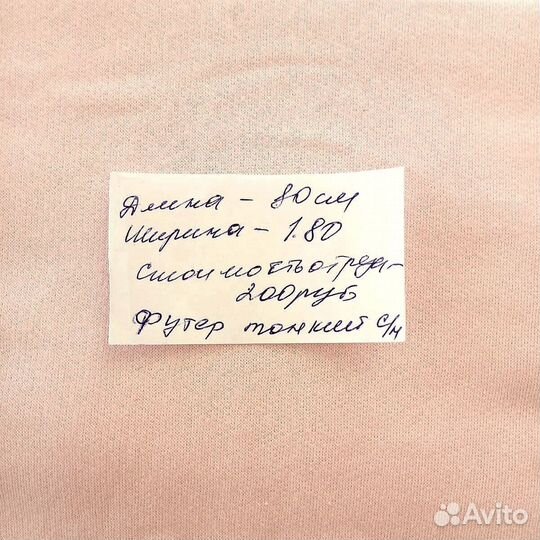 Длина - 80 см
Ширина - 1.80
Стоимость отреза -
200 руб
Футер тонкий с/н
Avito